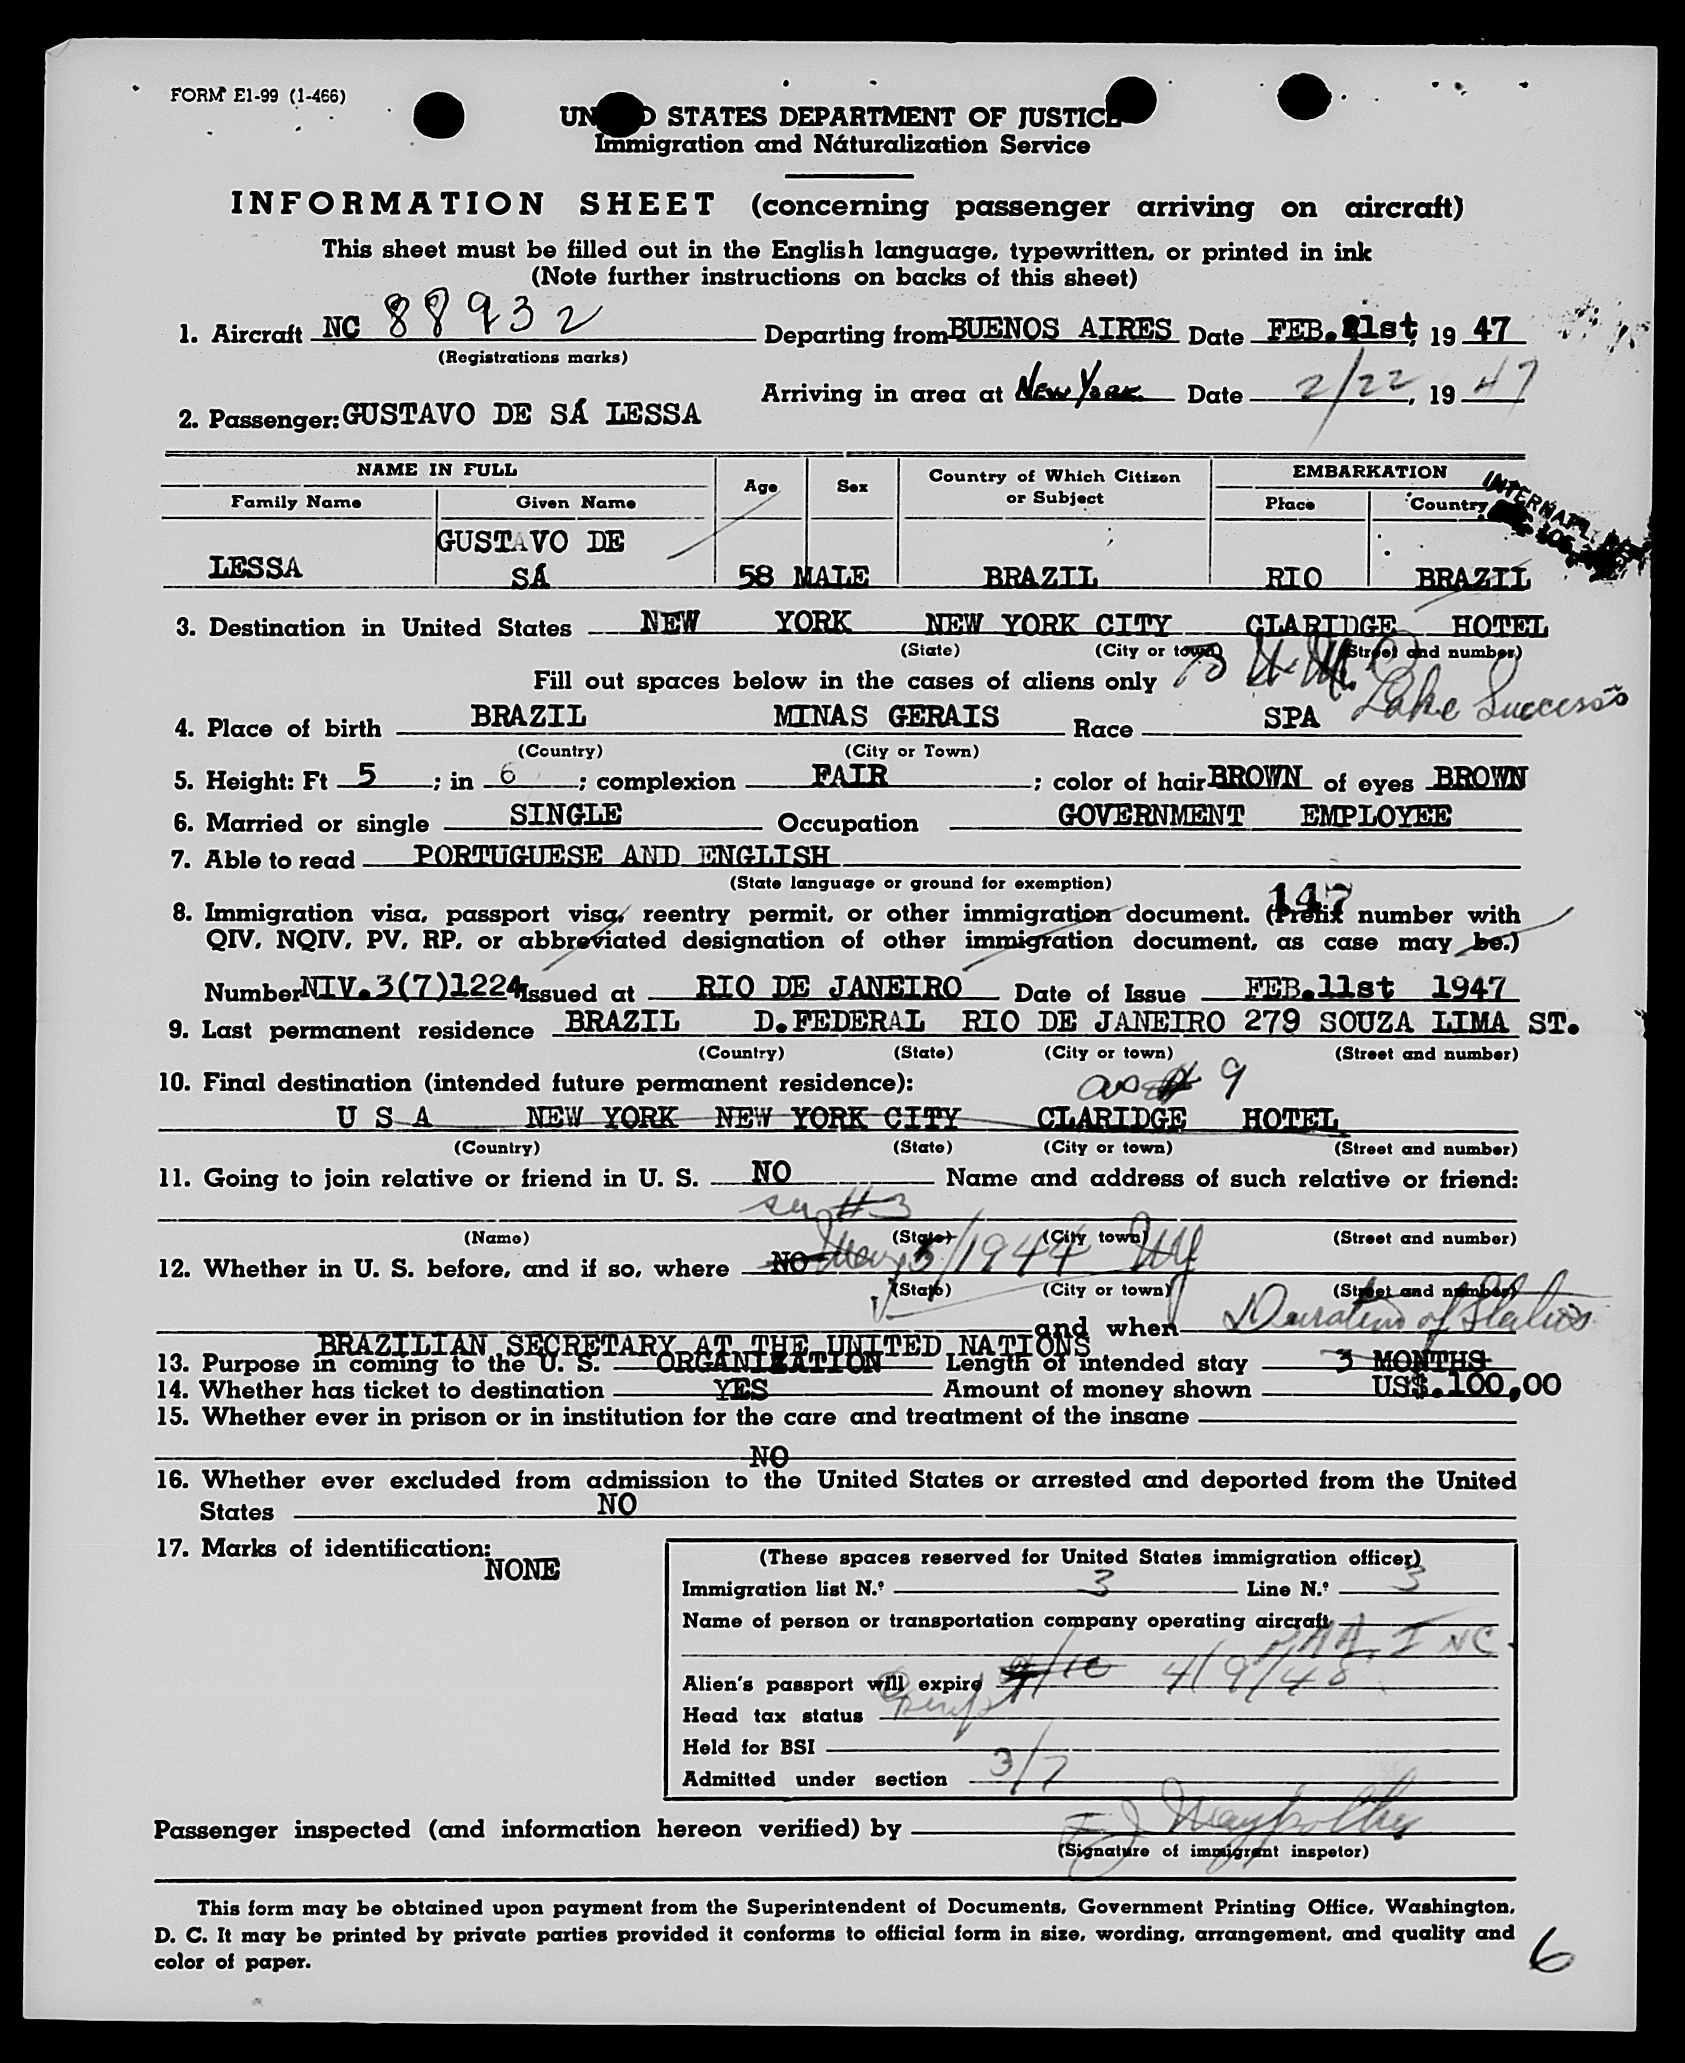 FORM E1-99 (1-466)
UN D STATES DEPARTMENT OF JUSTICE
Immigration and Naturalization Service
INFORMATION SHEET (concerning passenger arriving on aircraft)
This sheet must be filled out in the English language, typewritten, or printed in ink
(Note further instructions on backs of this sheet)
1. Aircraft NC 88932 Departing from BUENOS AIRES Date FEB. 21st, 19 47
(Registrations marks)
Arriving in area at New York Date 2/22, 19 47
2. Passenger: GUSTAVO DE SÁ LESSA
NAME IN FULL Age Sex Country of Which Citizen or Subject EMBARKATION
Family Name Given Name Place Country
GUSTAVO DE
LESSA SÁ 58 MALE BRAZIL RIO BRAZIL
3. Destination in United States NEW YORK NEW YORK CITY CLARIDGE HOTEL
(State) (City or town) (Street and number)
Fill out spaces below in the cases of aliens only To U.N. Lake Success
4. Place of birth BRAZIL MINAS GERAIS Race SPA
(Country) (City or Town)
5. Height: Ft 5 ; in 6 ; complexion FAIR ; color of hair BROWN of eyes BROWN
6. Married or single SINGLE Occupation GOVERNMENT EMPLOYEE
7. Able to read PORTUGUESE AND ENGLISH
(State language or ground for exemption)
147
8. Immigration visa, passport visa, reentry permit, or other immigration document. (Prefix number with
QIV, NQIV, PV, RP, or abbreviated designation of other immigration document, as case may be.)
Number NIV.3(7)1224 Issued at RIO DE JANEIRO Date of Issue FEB.11st 1947
9. Last permanent residence BRAZIL D.FEDERAL RIO DE JANEIRO 279 SOUZA LIMA ST.
(Country) (State) (City or town) (Street and number)
10. Final destination (intended future permanent residence): as # 9
U S A NEW YORK NEW YORK CITY CLARIDGE HOTEL
(Country) (State) (City or town) (Street and number)
11. Going to join relative or friend in U. S. NO Name and address of such relative or friend:
see #3
(Name) (State) (City town) (Street and number)
12. Whether in U. S. before, and if so, where NO 1944 NY
(State) (City or town) (Street and number)
and when Duration of Status
BRAZILIAN SECRETARY AT THE UNITED NATIONS
13. Purpose in coming to the U. S. ORGANIZATION Length of intended stay 3 MONTHS
14. Whether has ticket to destination YES Amount of money shown US$.100,00
15. Whether ever in prison or in institution for the care and treatment of the insane
NO
16. Whether ever excluded from admission to the United States or arrested and deported from the United
States NO
17. Marks of identification:
NONE
(These spaces reserved for United States immigration officer)
Immigration list N.º 3 Line N.º 3
Name of person or transportation company operating aircraft
PAA. INC.
Alien's passport will expire 4/9/48
Head tax status
Held for BSI
Admitted under section 3/7
Passenger inspected (and information hereon verified) by
(Signature of immigrant inspetor)
This form may be obtained upon payment from the Superintendent of Documents, Government Printing Office, Washington,
D. C. It may be printed by private parties provided it conforms to official form in size, wording, arrangement, and quality and
color of paper.
6